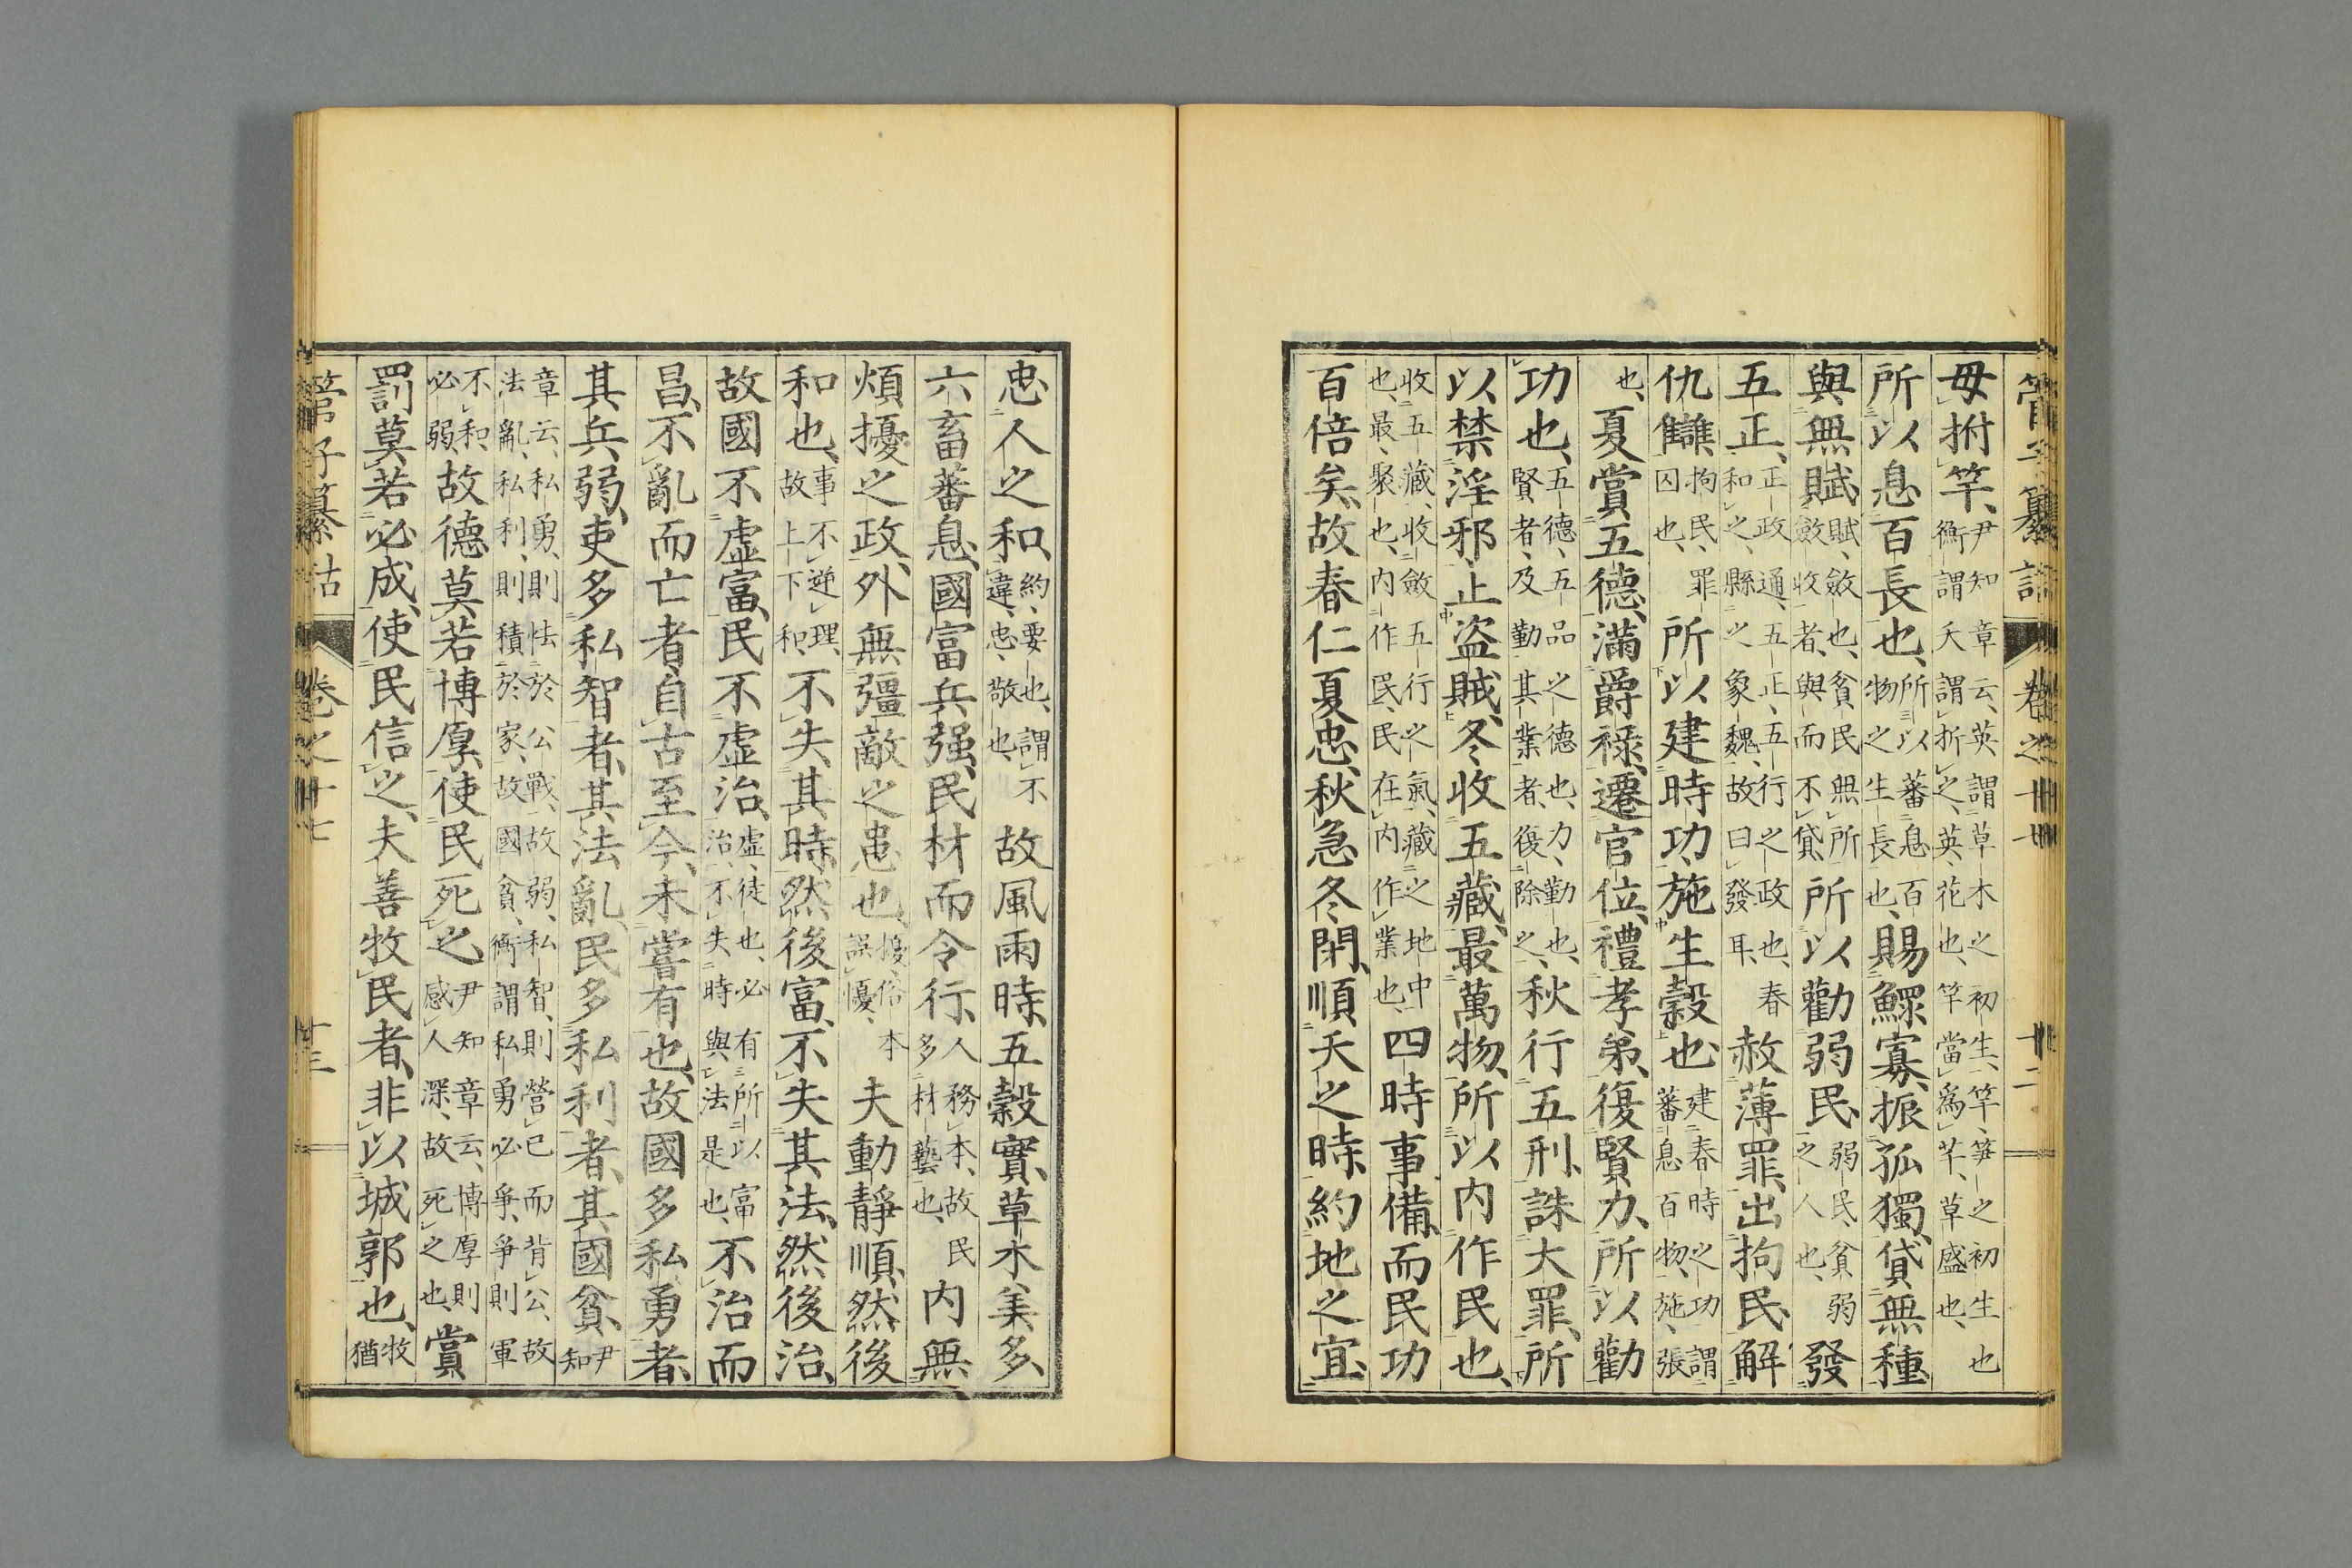 管子纂詁 卷之十七 十二
毋拊竿、尹知章云、英謂草木之初生、竿、笋之初生也衡謂夭謂折之、英、花也、竿當爲芉、草盛也、
所以息百長也、所以蕃息百物之生長也、賜鰥寡、振孤獨、貸無種
與無賦、賦、斂也、貧民無所斂收者、與而不貸、所以勸弱民、弱民、貧弱之人也、發
五正、正政通、五正、五行之政也、春和之、縣之象魏、故曰發耳、赦薄罪、出拘民、解
仇讎、拘民、罪囚也、所以建時功、施生穀也、建春時之功、謂蕃息百物、施、張
也、夏賞五德、滿爵祿、遷官位、禮孝弟、復賢力、所以勸
功也、五德、五品之德也、力、勤也、賢者、及勤其業者、復除之、秋行五刑、誅大罪、所
以禁淫邪、止盜賊、冬收五藏、最萬物、所以内作民也、
收五藏、收斂五行之氣、藏之地中也、最、聚也、内作民、民在内作業也、四時事備、而民功
百倍矣、故春仁夏忠、秋急冬閉、順天之時、約地之宜、
忠人之和、約、要也、謂不違、忠、敬也、故風雨時、五穀實、草木美多、
六畜蕃息、國富兵强、民材而令行、人務本、故民多材藝也、内無
煩擾之政、外無彊敵之患也、擾、俗本誤懮、夫動靜順、然後
和也、事不逆理、故上下和、不失其時、然後富、不失其法、然後治、
故國不虛富、民不虛治、虛、徒也、必有所以富治、不失時與法是也、不治而
昌、不亂而亡者、自古至今、未嘗有也、故國多私勇者、
其兵弱、吏多私智者、其法亂、民多私利者、其國貧、尹知
章云、私勇、則怯於公戰、故弱、私智、則營己而背公、故法亂、私利、則積於家、故國貧、衡謂私勇必爭、爭則軍
不和、必弱、故德莫若博厚、使民死之、尹知章云、博厚則感人深、故死之也、賞
罰莫若必成、使民信之、夫善牧民者、非以城郭也、牧猶
管子纂詁 卷之十七 十三